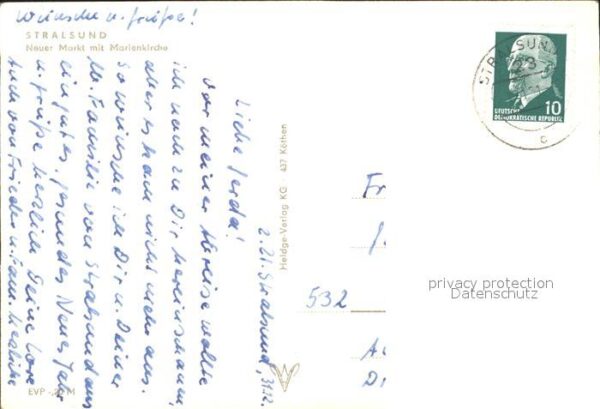 Wünsche u. Grüße!
STRALSUND
Neuer Markt mit Marienkirche
z. Zt. Stralsund, 31.12.
Liebe Gerda!
Vor meiner Abreise wollte
ich noch zu Dir hereinschauen,
aber es kam nicht mehr aus.
So wünsche ich Dir u. Deiner
lb. Familie von Stralsund aus
ein gutes, gesundes Neues Jahr
u. grüße herzlich Deine Lore
Auch von Frieden u. Fam. herzliche
EVP
Heldge-Verlag KG 437 Köthen
STRALSUND
DEUTSCHE
DEMOKRATISCHE REPUBLIK
10
c
Fr
532
A
D
privacy protection
Datenschutz